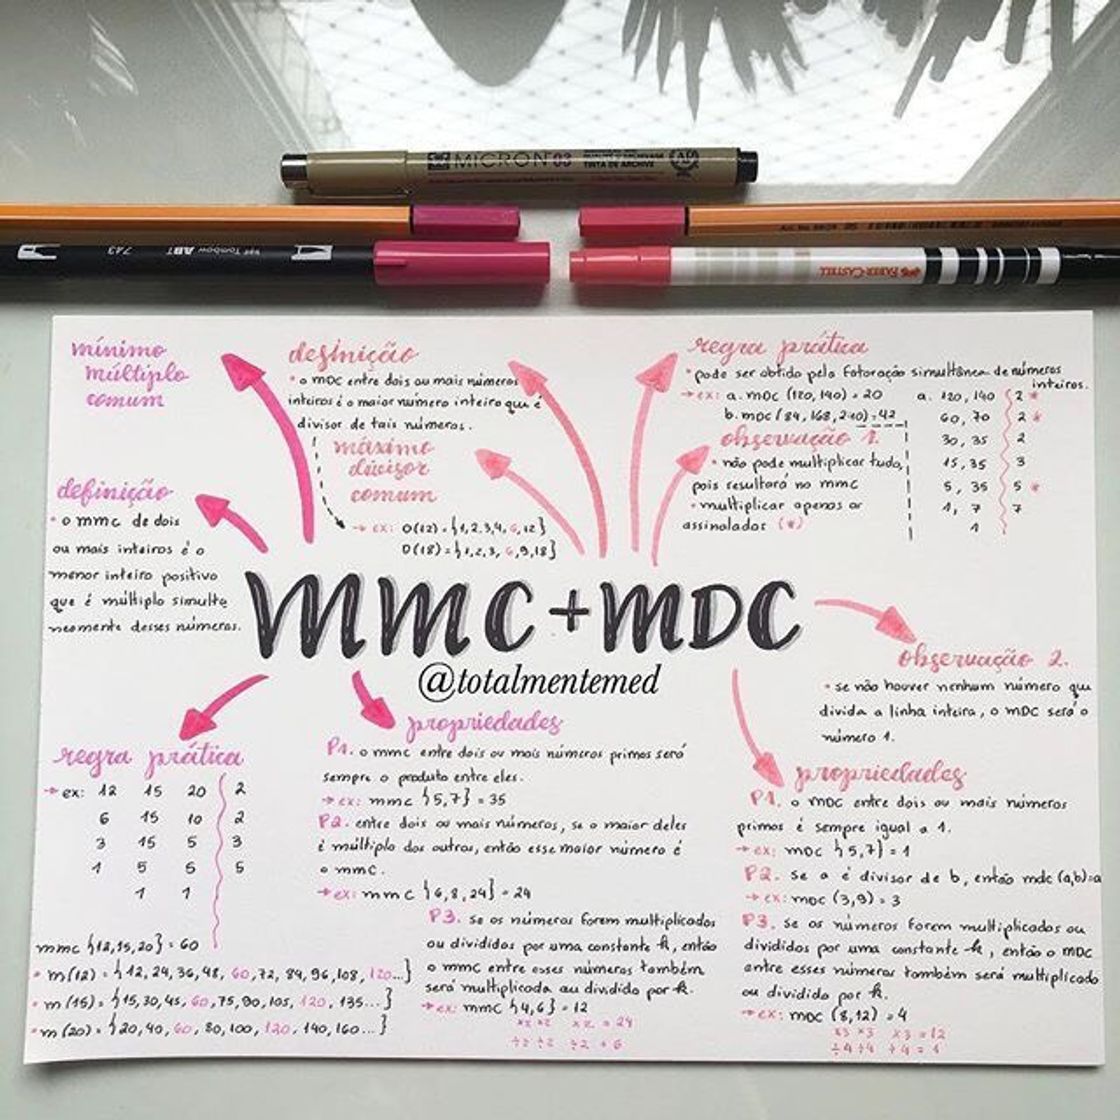 MICRON 03
TINTA DE ARCHIVE
743
Tombow ABT
FABER-CASTELL
mínimo
múltiplo
comum
definição
• o mmc de dois
ou mais inteiros é o
menor inteiro positivo
que é múltiplo simulta
neamente desses números.
definição
• o MDC entre dois ou mais números
inteiros é o maior número inteiro que é
divisor de tais números.
máximo
divisor
comum
→ ex: D(12) = {1,2,3,4,6,12}
D(18) = {1,2,3,6,9,18}
regra prática
• pode ser obtido pela fatoração simultânea de números
inteiros.
→ ex: a. MDC (120, 140) = 20
b. MDC (84, 168, 210) = 42
a. 120, 140 2 *
60, 70 2 *
30, 35 2
15, 35 3
5, 35 5 *
1, 7 7
1
observação 1.
• não pode multiplicar tudo,
pois resultará no mmc
• multiplicar apenas os
assinalados (*)
MMC + MDC
@totalmentemed
observação 2.
• se não houver nenhum número que
divida a linha inteira, o MDC será o
número 1.
regra prática
→ ex: 12 15 20 2
6 15 10 2
3 15 5 3
1 5 5 5
1 1
mmc {12,15,20} = 60
• m(12) = {12,24,36,48,60,72,84,96,108,120...}
• m(15) = {15,30,45,60,75,90,105,120,135...}
• m(20) = {20,40,60,80,100,120,140,160...}
propriedades
P1. o mmc entre dois ou mais números primos será
sempre o produto entre eles.
→ ex: mmc {5,7} = 35
P2. entre dois ou mais números, se o maior deles
é múltiplo dos outros, então esse maior número é
o mmc.
→ ex: mmc {6,8,24} = 24
P3. se os números forem multiplicados
ou divididos por uma constante k, então
o mmc entre esses números também
será multiplicado ou dividido por k.
→ ex: mmc {4,6} = 12
x2 x2 x2 = 24
÷2 ÷2 ÷2 = 6
propriedades
P1. o MDC entre dois ou mais números
primos é sempre igual a 1.
→ ex: MDC {5,7} = 1
P2. se a é divisor de b, então mdc (a,b)=a
→ ex: MDC (3,9) = 3
P3. se os números forem multiplicados ou
divididos por uma constante k, então o MDC
entre esses números também será multiplicado
ou dividido por k.
→ ex: MDC (8,12) = 4
x3 x3 x3 = 12
÷4 ÷4 ÷4 = 1